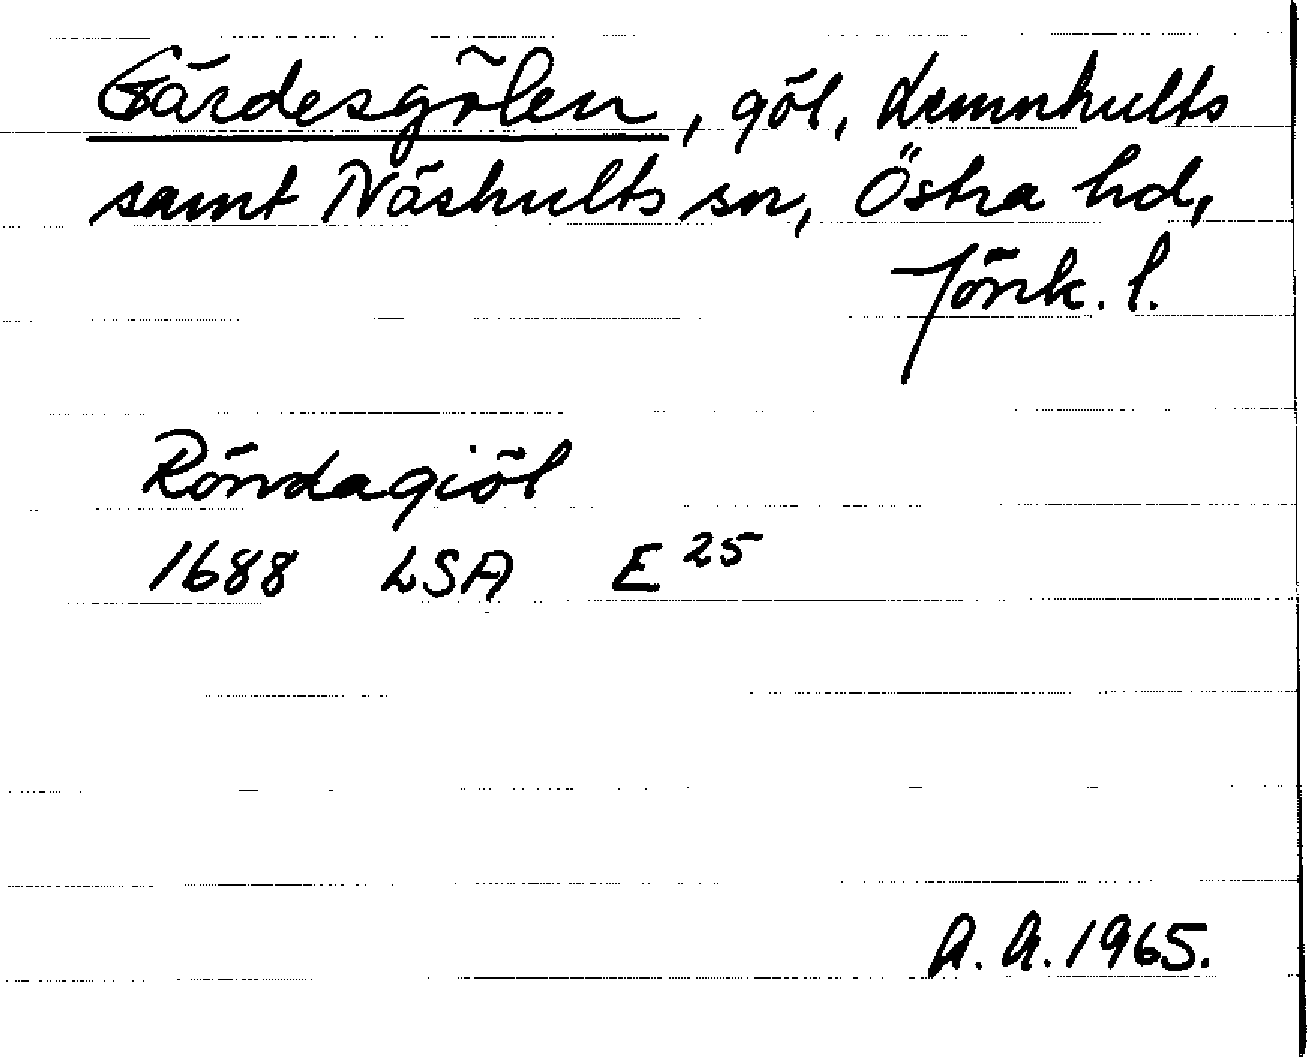 Gärdesgölen, göl, Lemnhults
samt Näshults sn, Östra hd,
Jönk. l.
Röndagiöl
1688 LSA E 25
A. A. 1965.